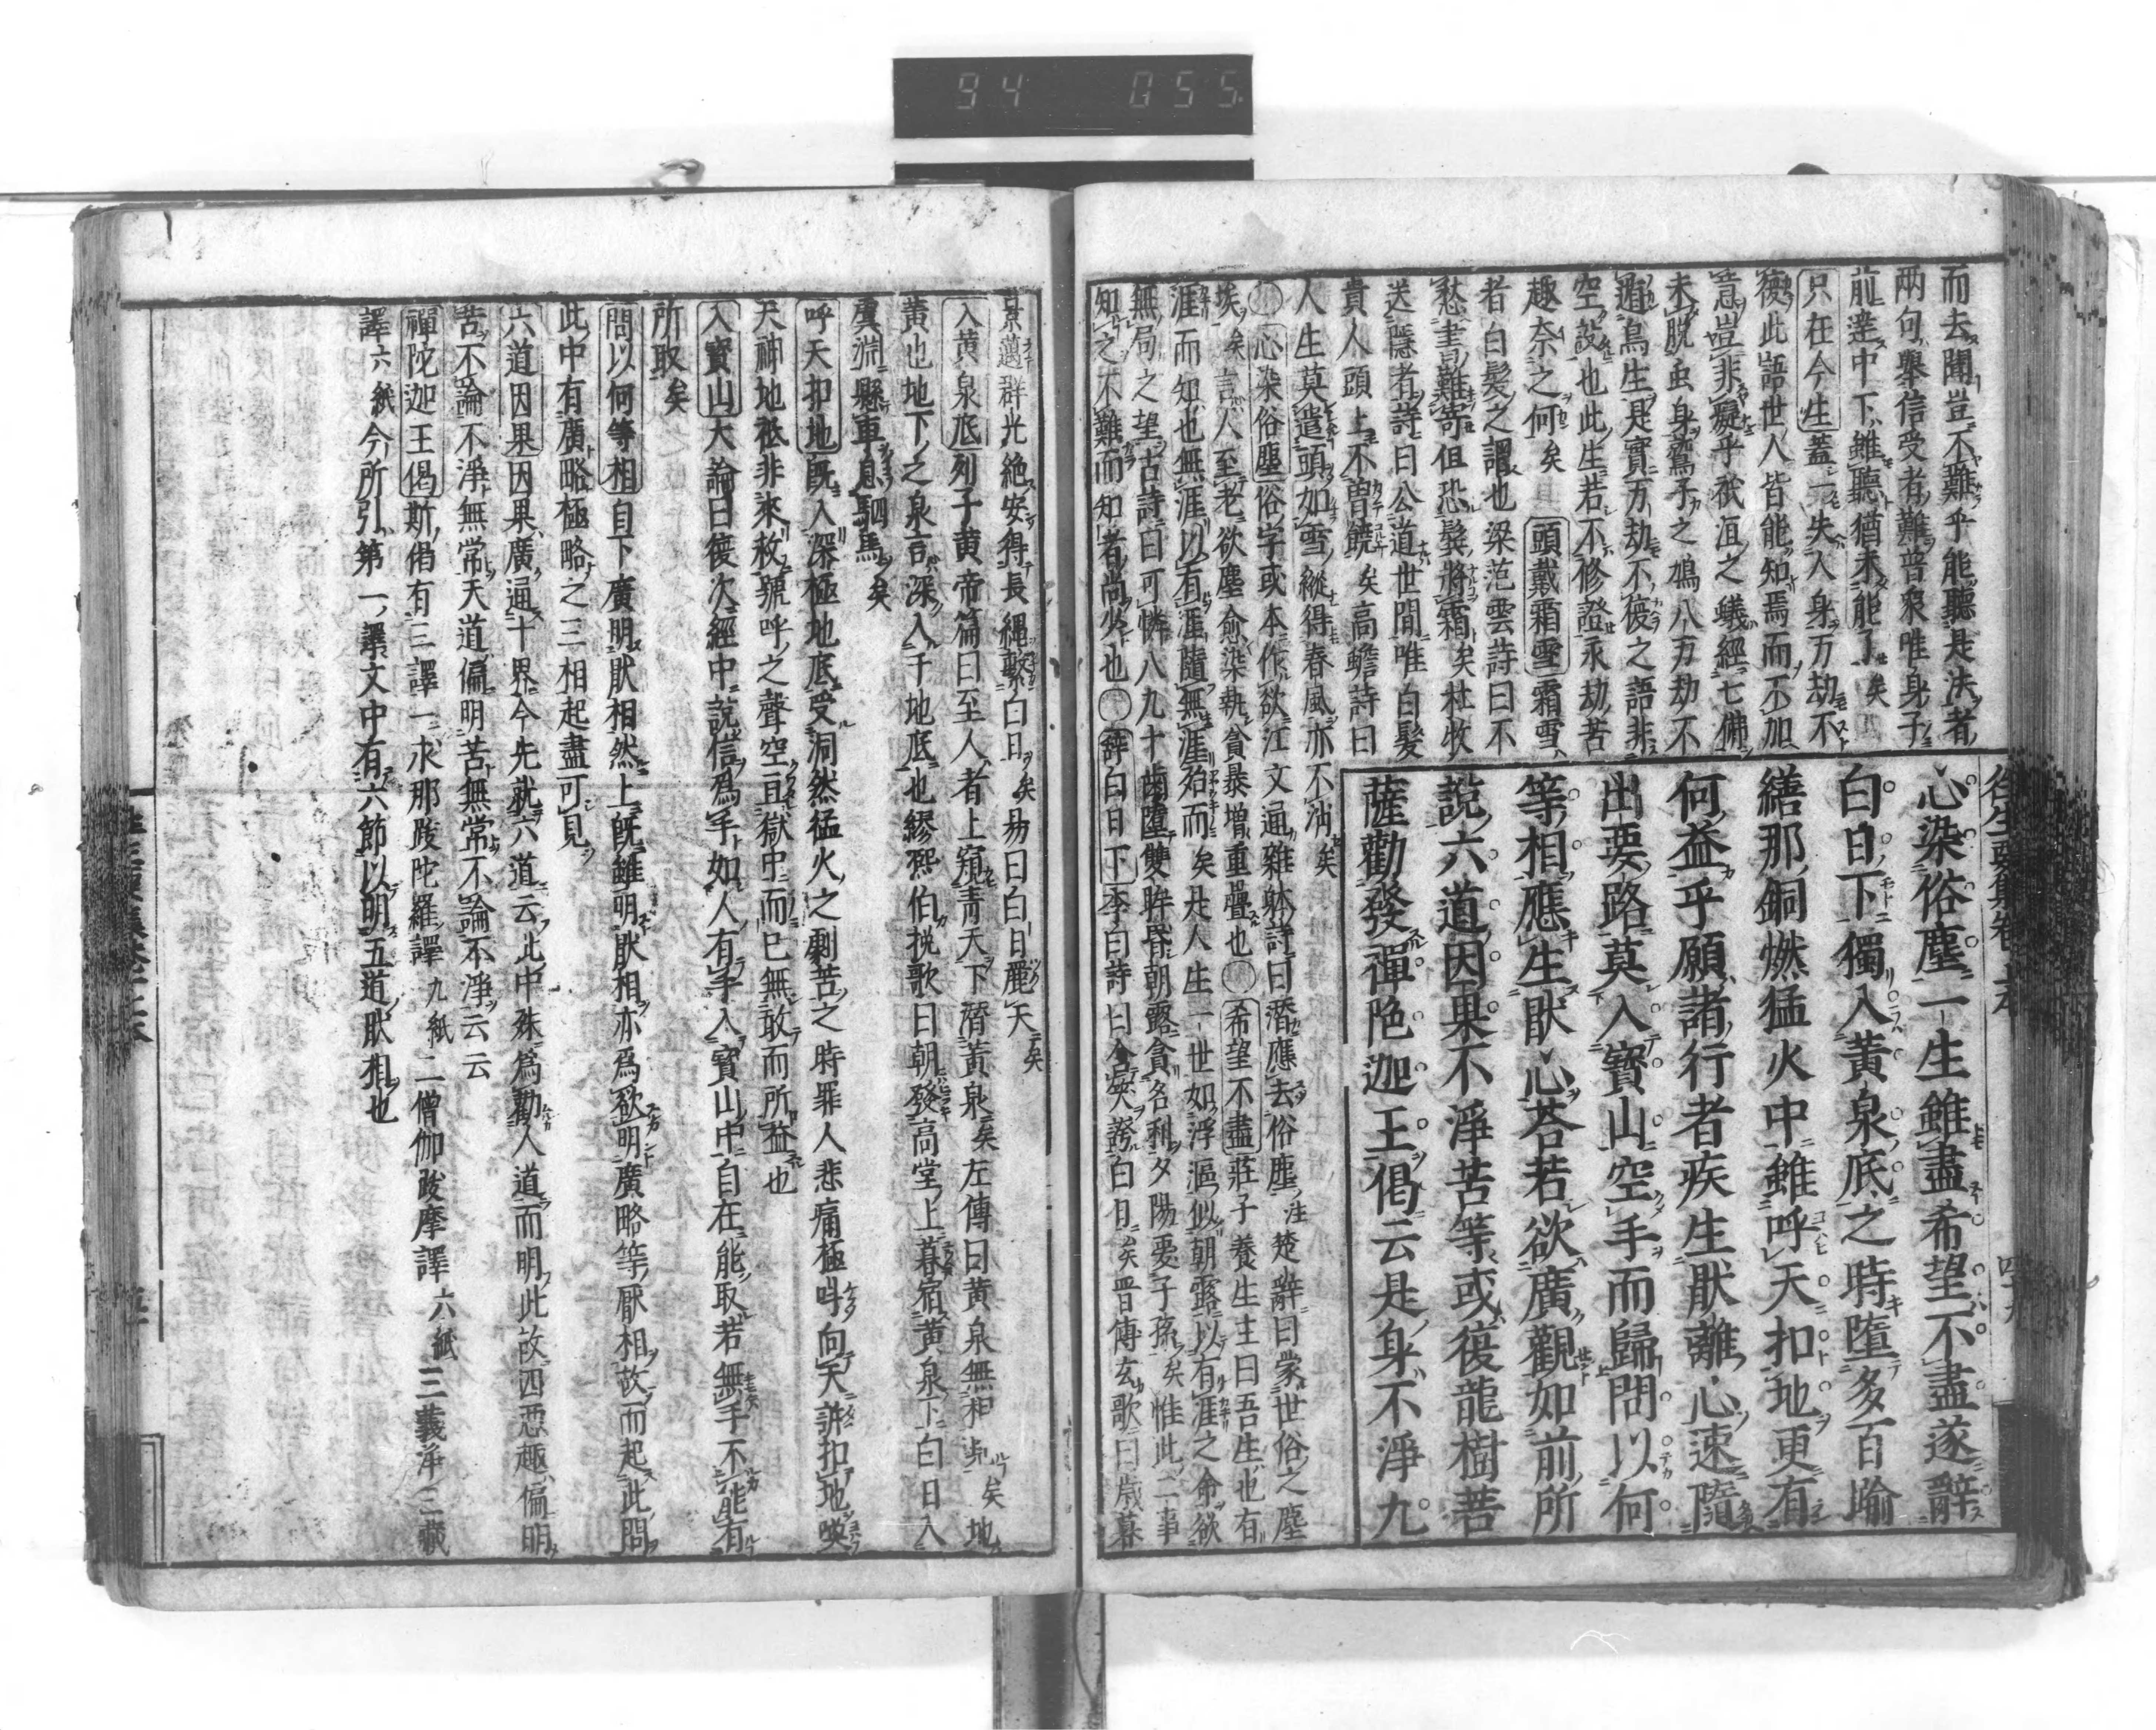 94 055
往生要集卷上本
而去聞豈不難乎能聽是法者
兩句舉信受者難普衆唯身子
前達中下雖聽猶未能了矣
只在今生蓋一失人身万劫不
復此語世人皆能知焉而不加
意豈非癡乎祇洹之蟻經七佛
未脫虫身鶖子之鳩八万劫不
遇鳥生是實万劫不復之語非
空設也此生若不修證永劫苦
趣奈之何矣 頭戴霜雪霜雪
者白髮之謂也梁范雲詩曰不
愁書難寄但恐鬢將霜矣杜牧
送隱者詩曰公道世間唯白髮
貴人頭上不曽饒矣高蟾詩曰
人生莫遣頭如雪縱得春風亦不消矣
心染俗塵一生雖盡希望不盡遂辭
白日下獨入黃泉底之時墮多百踰
繕那銅燃猛火中雖呼天扣地更有
何益乎願諸行者疾生猒離心速隨
出要路莫入寶山空手而歸問以何
等相應生猒心荅若欲廣觀如前所
說六道因果不淨苦等或復龍樹菩
薩勸發禪陁迦王偈云是身不淨九
○心染俗塵俗字或本作欲江文通雜躰詩曰潛應去俗塵注楚辭曰蒙世俗之塵
埃矣言人至老欲塵愈染執貪暴增重疊也○希望不盡莊子養生主曰吾生也有
涯而知也無涯以有涯隨無涯殆而矣是人生一世如浮漚似朝露以有涯之命欲
無局之望古詩曰可憐八九十齒墮雙眸昏朝露貪名利夕陽憂子孫矣惟此二事
知之不難而知者尚少也○辭白日下李白詩曰含笑誇白日矣晋傳玄歌曰歳暮
景邁群光絶安得長縄繫白日矣易曰白日麗天矣
入黃泉底列子黃帝篇曰至人者上窺青天下潛黃泉矣左傳曰黃泉無相見矣地
黃也地下之泉言深入于地底也繆熙伯挽歌曰朝發高堂上暮宿黃泉下白日入
虞淵懸車息駟馬矣
呼天扣地既入深極地底受洞然猛火之劇苦之時罪人悲痛極叫向天訴扣地喚
天神地祇非來救號呼之聲空亘獄中而已無敢而所益也
入寶山大論曰復次經中說信爲手如人有手入寶山中自在能取若無手不能有
所取矣
問以何等相自下廣明猒相然上既雖明猒相亦爲欲明廣略等厭相故而起此問
此中有廣略極略之三相起盡可見
六道因果因果廣通十界今先就六道云此中殊爲勸人道而明此故四惡趣偏明
苦不論不淨無常天道偏明苦無常不論不淨云云
禪陀迦王偈斯偈有三譯一求那跋陀羅譯九紙二僧伽跋摩譯六紙三義淨三藏
譯六紙今所引第一譯文中有六節以明五道猒相也